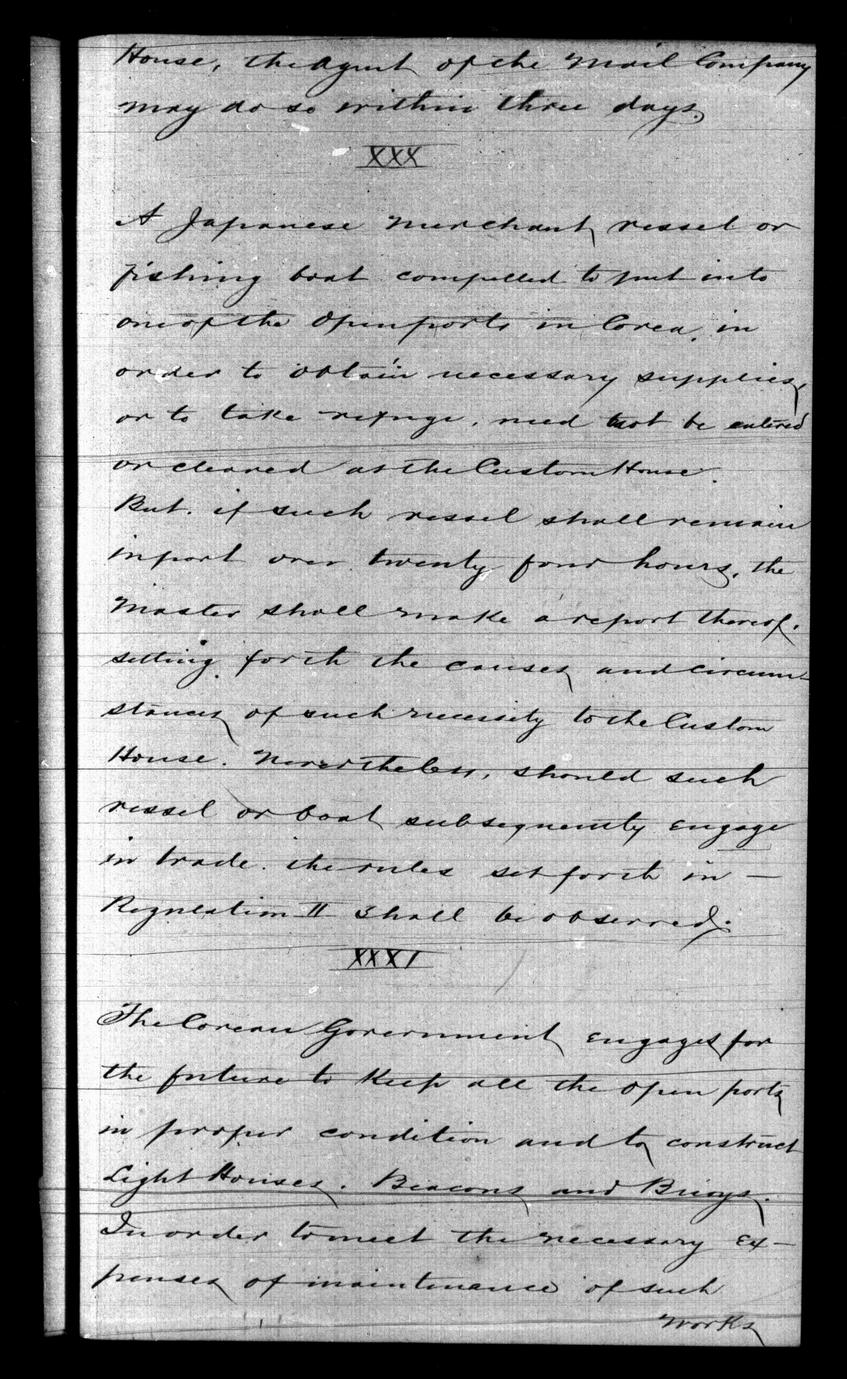 House, the Agent of the Mail Company
may do so within three days.
XXX
A Japanese Merchant vessel or
fishing boat compelled to put into
one of the Open ports in Corea, in
order to obtain necessary supplies,
or to take refuge, need not be entered
or cleared at the Custom House.
But, if such vessel shall remain
in port over twenty four hours, the
Master shall make a report thereof,
setting forth the causes and circum-
stances of such necessity to the Custom
House. Nevertheless, should such
vessel or boat subsequently engage
in trade, the rules set forth in —
Regulation II shall be observed.
XXXI
The Corean Government engages for
the future to keep all the open ports
in proper condition and to construct
Light Houses, Beacons and Buoys.
In order to meet the necessary ex-
penses of maintenance of such
works